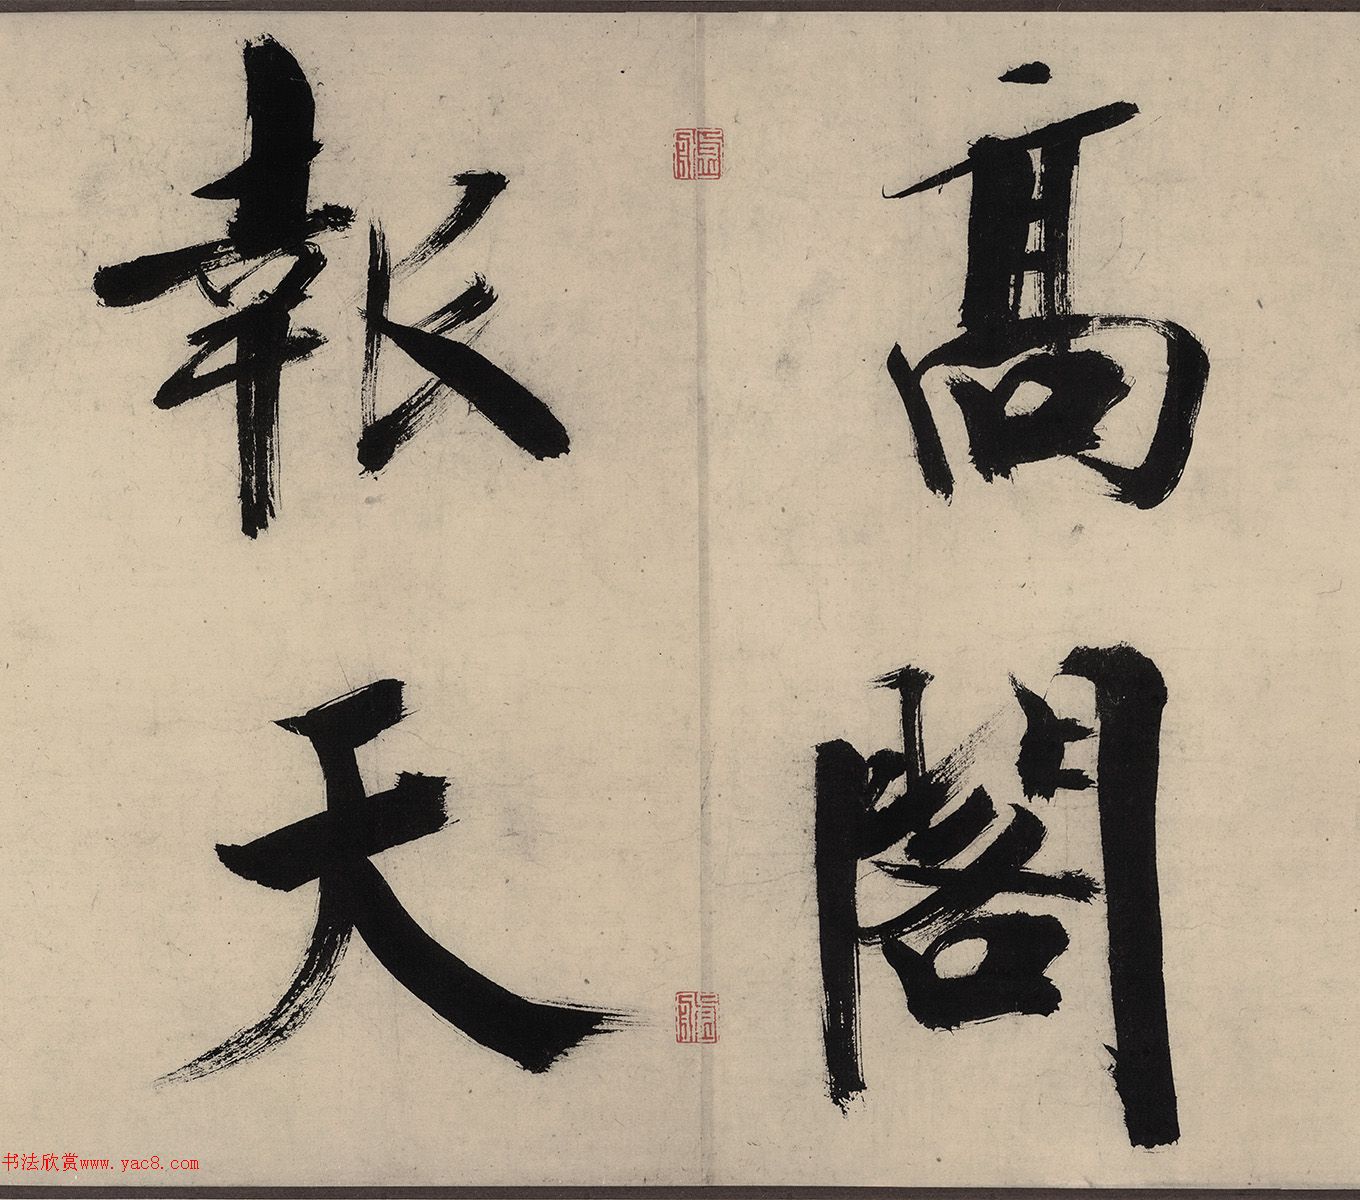 高閣
報天
书法欣赏www.yac8.com